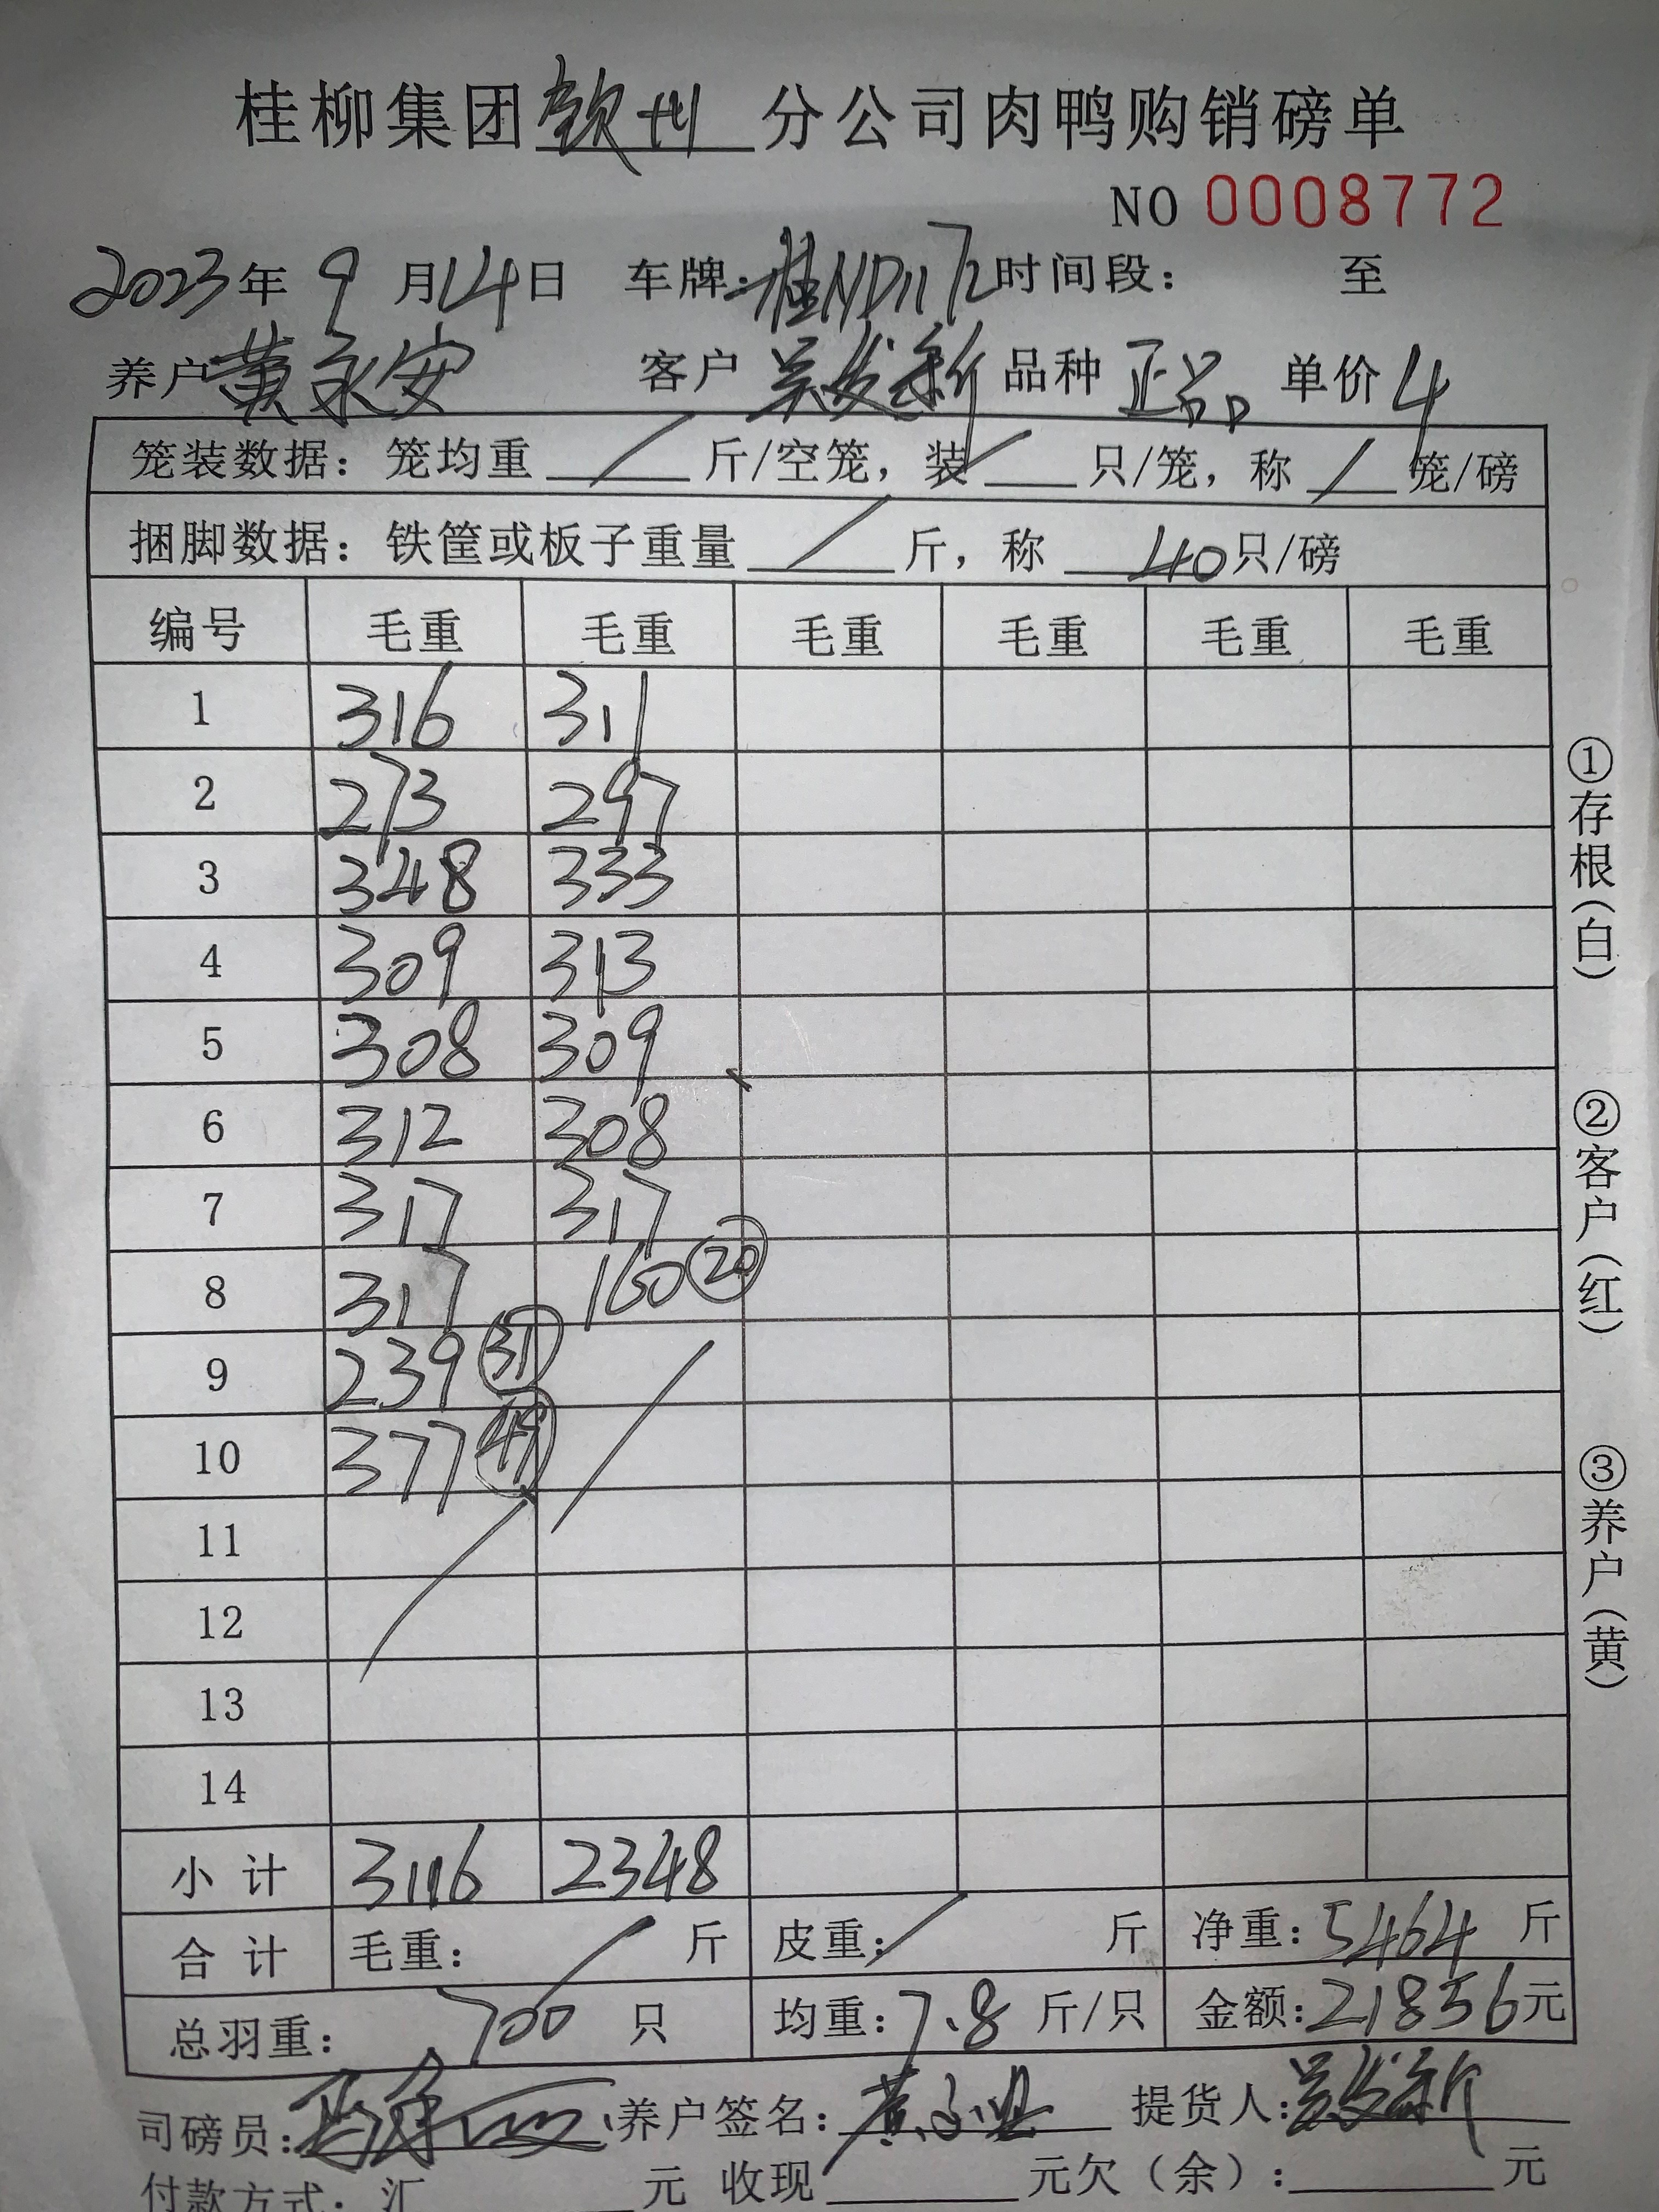 桂柳集团钦州分公司肉鸭购销磅单
NO 0008772
2023年9月14日 车牌:桂ND1172时间段: 至
养户黄永安 客户吴发新 品种正品 单价4
笼装数据:笼均重 / 斤/空笼,装 / 只/笼,称 / 笼/磅
捆脚数据:铁筐或板子重量 / 斤,称 40只/磅
编号 毛重 毛重 毛重 毛重 毛重 毛重
1 316 311
2 273 297
3 348 333
4 309 313
5 308 309
6 312 308
7 317 317
8 317 160 20
9 239 31
10 377 49
11
12
13
14
小计 3116 2348
合计 毛重: / 斤 皮重: / 斤 净重:5464斤
总羽重: 700 只 均重:7.8斤/只 金额:21856元
司磅员: 养户签名:黄 提货人:吴发新
付款方式:汇 元 收现 元欠(余): 元
①存根(白)
②客户(红)
③养户(黄)